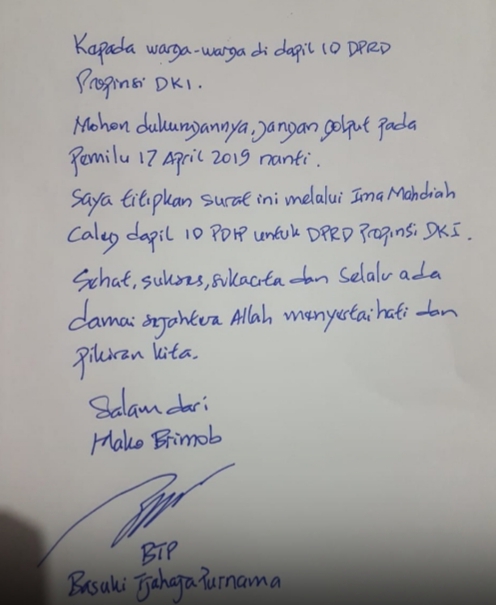 Kepada warga-warga di dapil 10 DPRD
Propinsi DKI.
Mohon dukungannya, jangan golput pada
Pemilu 17 April 2019 nanti.
Saya titipkan surat ini melalui Ima Mahdiah
Caleg dapil 10 PDIP untuk DPRD Propinsi DKI.
Sehat, sukses, sukacita dan Selalu ada
damai sejahtera Allah menyertai hati dan
pikiran kita.
Salam dari
Mako Brimob
BTP
Basuki Tjahaja Purnama